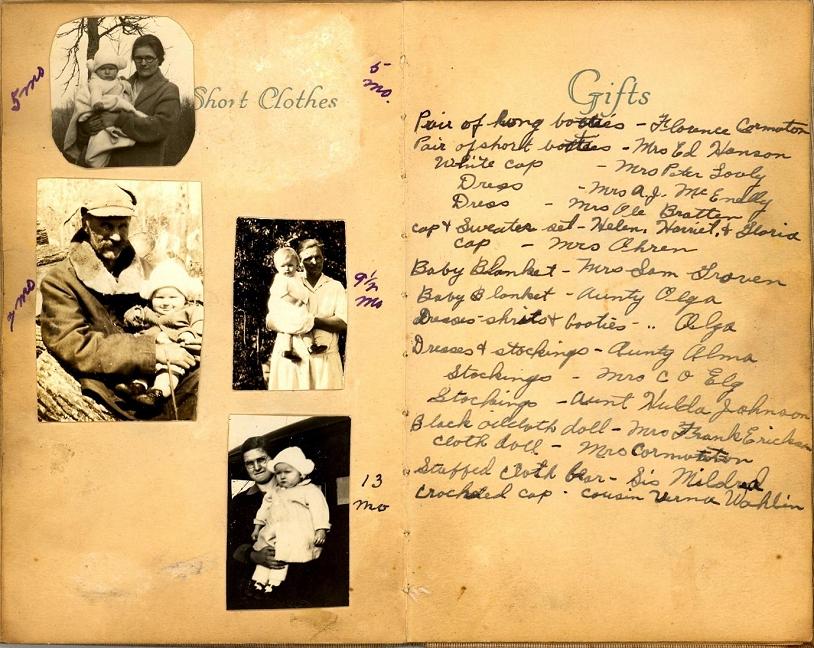 5 mo
Short Clothes
5 mo.
7 mo
9½ mo
13 mo
Gifts
Pair of long booties - Florence Cormoton
Pair of short booties - Mrs Ed Hanson
White cap - Mrs Peter Lovly
Dress - Mrs A.J. McEnelly
Dress - Mrs Ole Bratten
cap & Sweater set - Helen, Harriet, & Gloria
cap - Mrs Ahren
Baby Blanket - Mrs Sam Troven
Baby Blanket - Aunty Olga
Dresses-shrits & booties - " Olga
Dresses & stockings - Aunty Alma
Stockings - Mrs C O Elg
Stockings - Aunt Hulda Johnson
Black oilcloth doll - Mrs Frank Erickson
cloth doll - Mrs Cormoton
Stuffed cloth bear - Sis Mildred
Crocheted cap - cousin Verna Wahlin